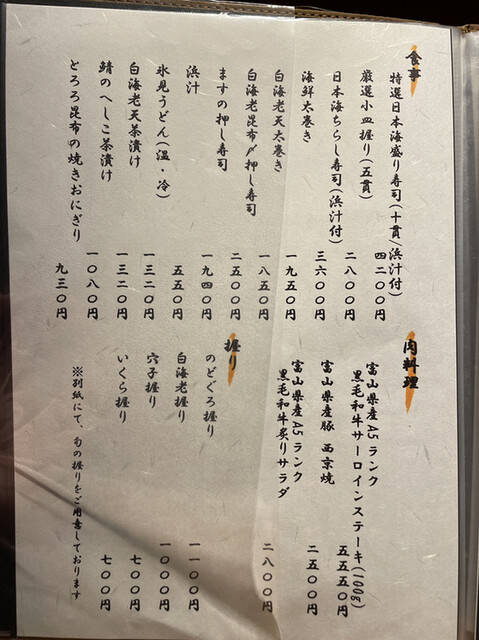 食事
特選日本海盛り寿司(十貫/浜汁付) 四二〇〇円
厳選小皿握り(五貫) 二八〇〇円
日本海ちらし寿司(浜汁付) 三六〇〇円
海鮮太巻き 一九五〇円
白海老天太巻き 一八五〇円
白海老昆布〆押し寿司 二五〇〇円
ますの押し寿司 一九四〇円
浜汁 五五〇円
氷見うどん(温・冷) 一三二〇円
白海老天茶漬け 一三二〇円
鯖のへしこ茶漬け 一〇八〇円
とろろ昆布の焼きおにぎり 九三〇円
肉料理
富山県産A5ランク
黒毛和牛サーロインステーキ(100g) 五五五〇円
富山県産豚 西京焼 二五〇〇円
富山県産A5ランク
黒毛和牛炙りサラダ 二八〇〇円
握り
のどぐろ握り 一一〇〇円
白海老握り 一〇〇〇円
穴子握り 七〇〇円
いくら握り 七〇〇円
※別紙にて、旬の握りをご用意しております